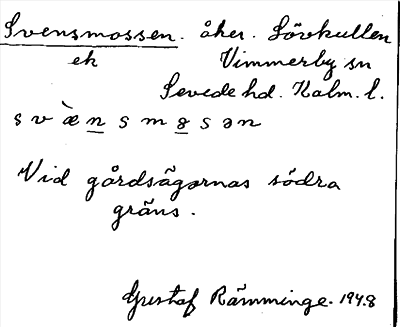 Svensmossen. åker. Lövkullen
ek Vimmerby sn
Sevede hd. Kalm. l.
s v æ̀ n s m o s ə n
Vid gårdsägornas södra
gräns.
Gustaf Rämminge. 1948